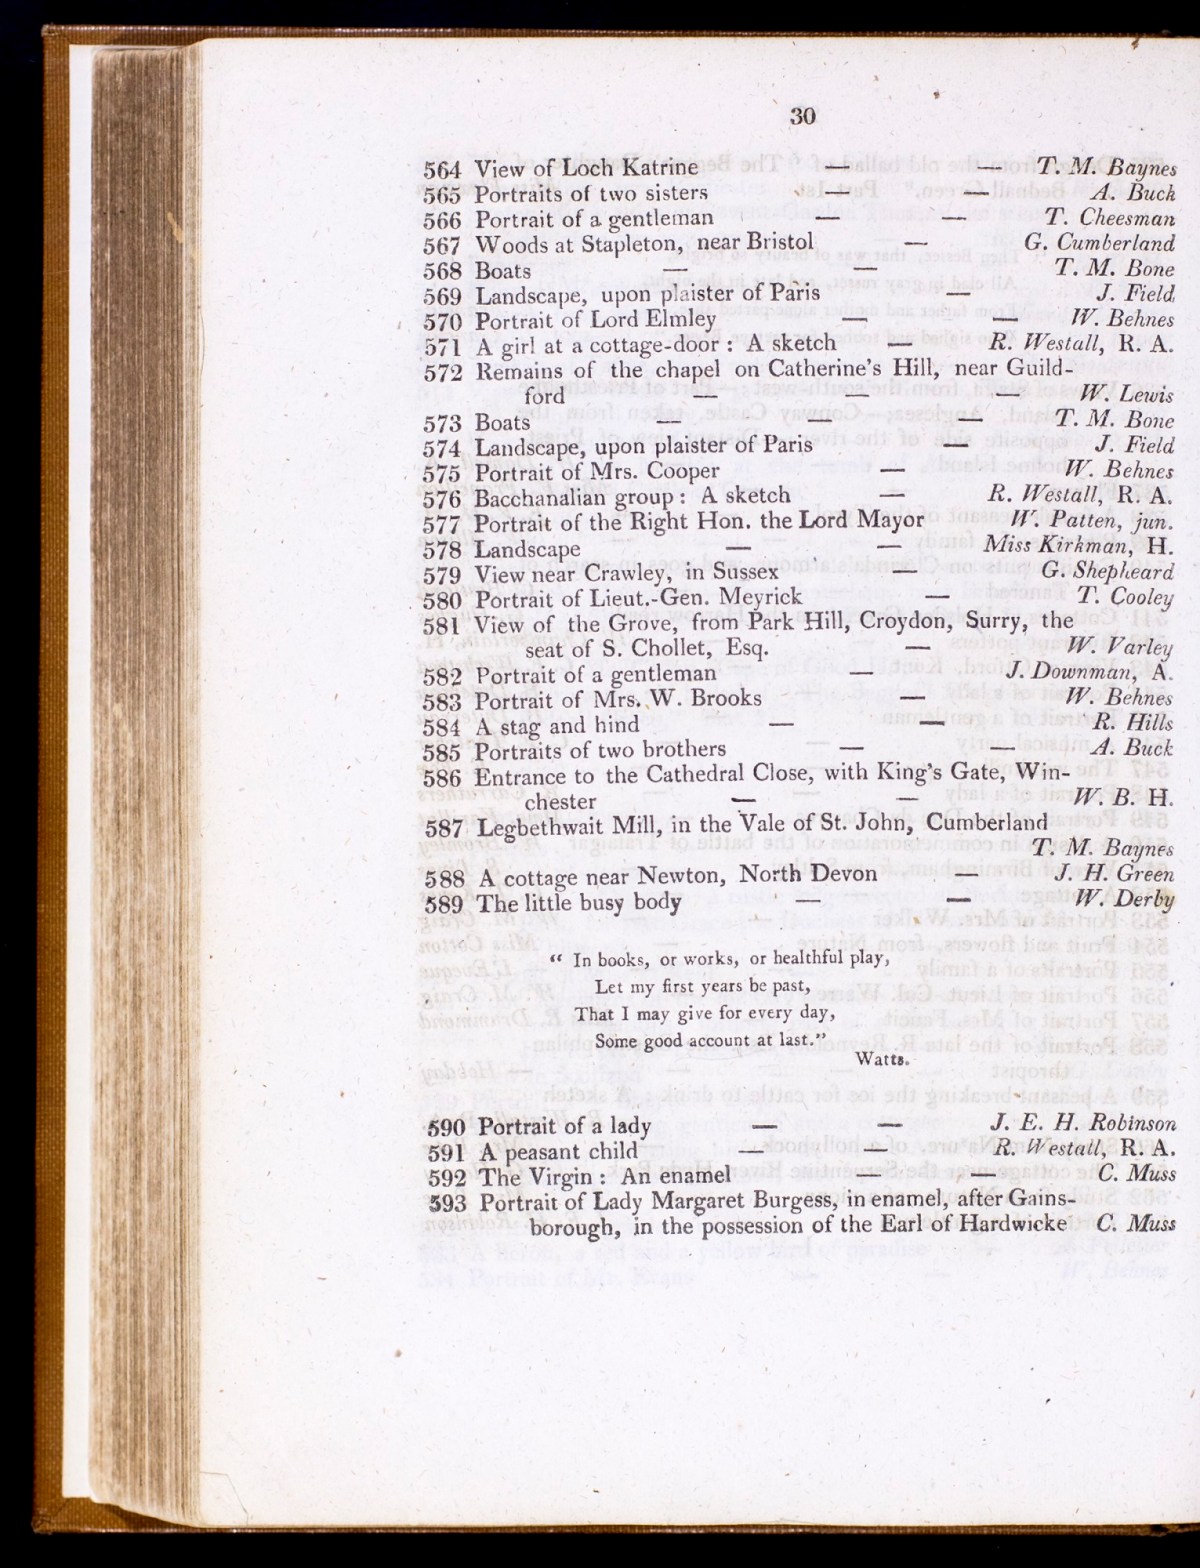 30
564 View of Loch Katrine — — T. M. Baynes
565 Portraits of two sisters — — A. Buck
566 Portrait of a gentleman — — T. Cheesman
567 Woods at Stapleton, near Bristol — G. Cumberland
568 Boats — — T. M. Bone
569 Landscape, upon plaister of Paris — J. Field
570 Portrait of Lord Elmley — — W. Behnes
571 A girl at a cottage-door : A sketch — R. Westall, R. A.
572 Remains of the chapel on Catherine's Hill, near Guild-
ford — — — W. Lewis
573 Boats — — — T. M. Bone
574 Landscape, upon plaister of Paris — J. Field
575 Portrait of Mrs. Cooper — W. Behnes
576 Bacchanalian group : A sketch — R. Westall, R. A.
577 Portrait of the Right Hon. the Lord Mayor W. Patten, jun.
578 Landscape — — Miss Kirkman, H.
579 View near Crawley, in Sussex — G. Shepheard
580 Portrait of Lieut.-Gen. Meyrick — T. Cooley
581 View of the Grove, from Park Hill, Croydon, Surry, the
seat of S. Chollet, Esq. — W. Varley
582 Portrait of a gentleman — J. Downman, A.
583 Portrait of Mrs. W. Brooks — W. Behnes
584 A stag and hind — — R. Hills
585 Portraits of two brothers — — A. Buck
586 Entrance to the Cathedral Close, with King's Gate, Win-
chester — — W. B. H.
587 Legbethwait Mill, in the Vale of St. John, Cumberland
T. M. Baynes
588 A cottage near Newton, North Devon — J. H. Green
589 The little busy body — — W. Derby
“ In books, or works, or healthful play,
Let my first years be past,
That I may give for every day,
Some good account at last.”
Watts.
590 Portrait of a lady — — J. E. H. Robinson
591 A peasant child — — R. Westall, R. A.
592 The Virgin : An enamel — — C. Muss
593 Portrait of Lady Margaret Burgess, in enamel, after Gains-
borough, in the possession of the Earl of Hardwicke C. Muss